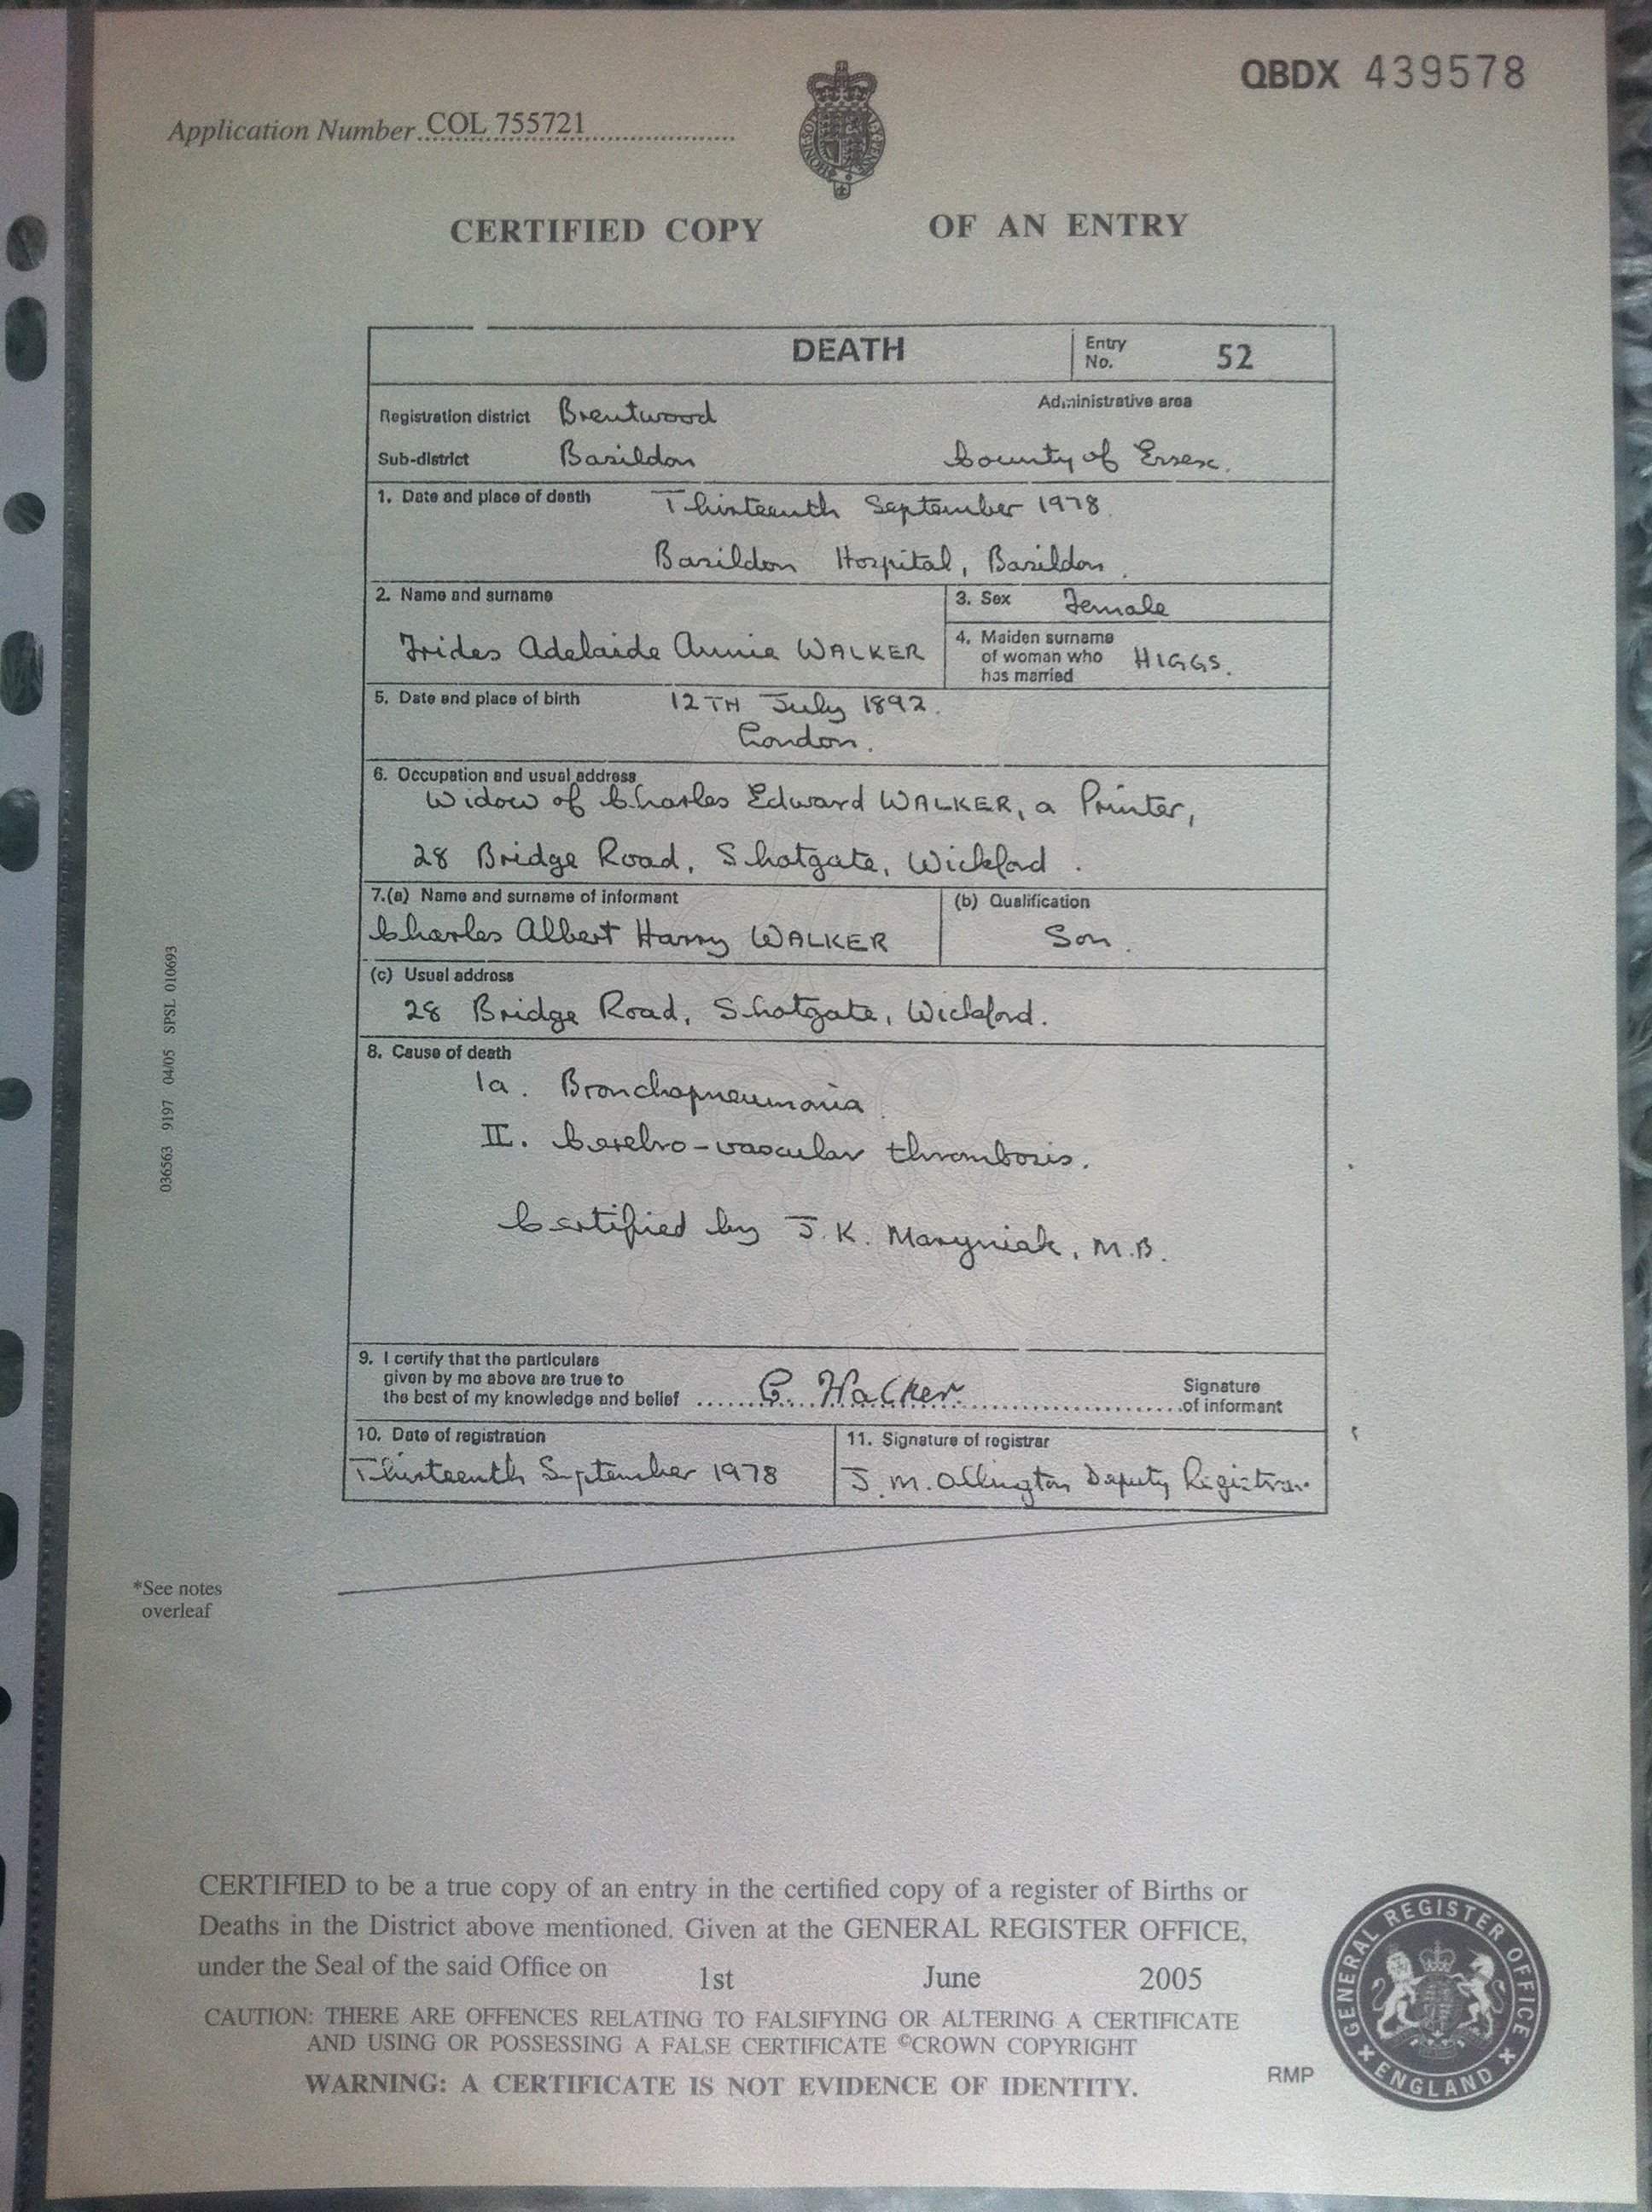 QBDX 439578
Application Number COL 755721
CERTIFIED COPY OF AN ENTRY
DEATH
Entry No. 52
Registration district Brentwood
Administrative area
Sub-district Basildon
County of Essex.
1. Date and place of death Thirteenth September 1978.
Basildon Hospital, Basildon.
2. Name and surname
Irides Adelaide Annie WALKER
3. Sex Female
4. Maiden surname
of woman who
has married
HIGGS.
5. Date and place of birth 12TH July 1892.
London.
6. Occupation and usual address
Widow of Charles Edward WALKER, a Printer,
28 Bridge Road, Shotgate, Wickford.
7.(a) Name and surname of informant
Charles Albert Harry WALKER
(b) Qualification
Son.
(c) Usual address
28 Bridge Road, Shotgate, Wickford.
8. Cause of death
1a. Bronchopneumonia.
II. Cerebro-vascular thrombosis.
Certified by J.K. Maryniak, M.B.
9. I certify that the particulars
given by me above are true to
the best of my knowledge and belief C. Walker.
Signature
of informant
10. Date of registration
Thirteenth September 1978
11. Signature of registrar
J.M. Ollington Deputy Registrar
036563 9197 04/05 SPSL 010693
*See notes
overleaf
CERTIFIED to be a true copy of an entry in the certified copy of a register of Births or
Deaths in the District above mentioned. Given at the GENERAL REGISTER OFFICE,
under the Seal of the said Office on 1st June 2005
CAUTION: THERE ARE OFFENCES RELATING TO FALSIFYING OR ALTERING A CERTIFICATE
AND USING OR POSSESSING A FALSE CERTIFICATE ©CROWN COPYRIGHT
WARNING: A CERTIFICATE IS NOT EVIDENCE OF IDENTITY.
RMP
GENERAL REGISTER OFFICE
ENGLAND